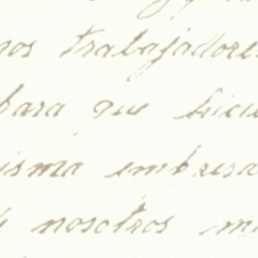 nos trabajadores
para que hicie
isma empresa
nosotros mi